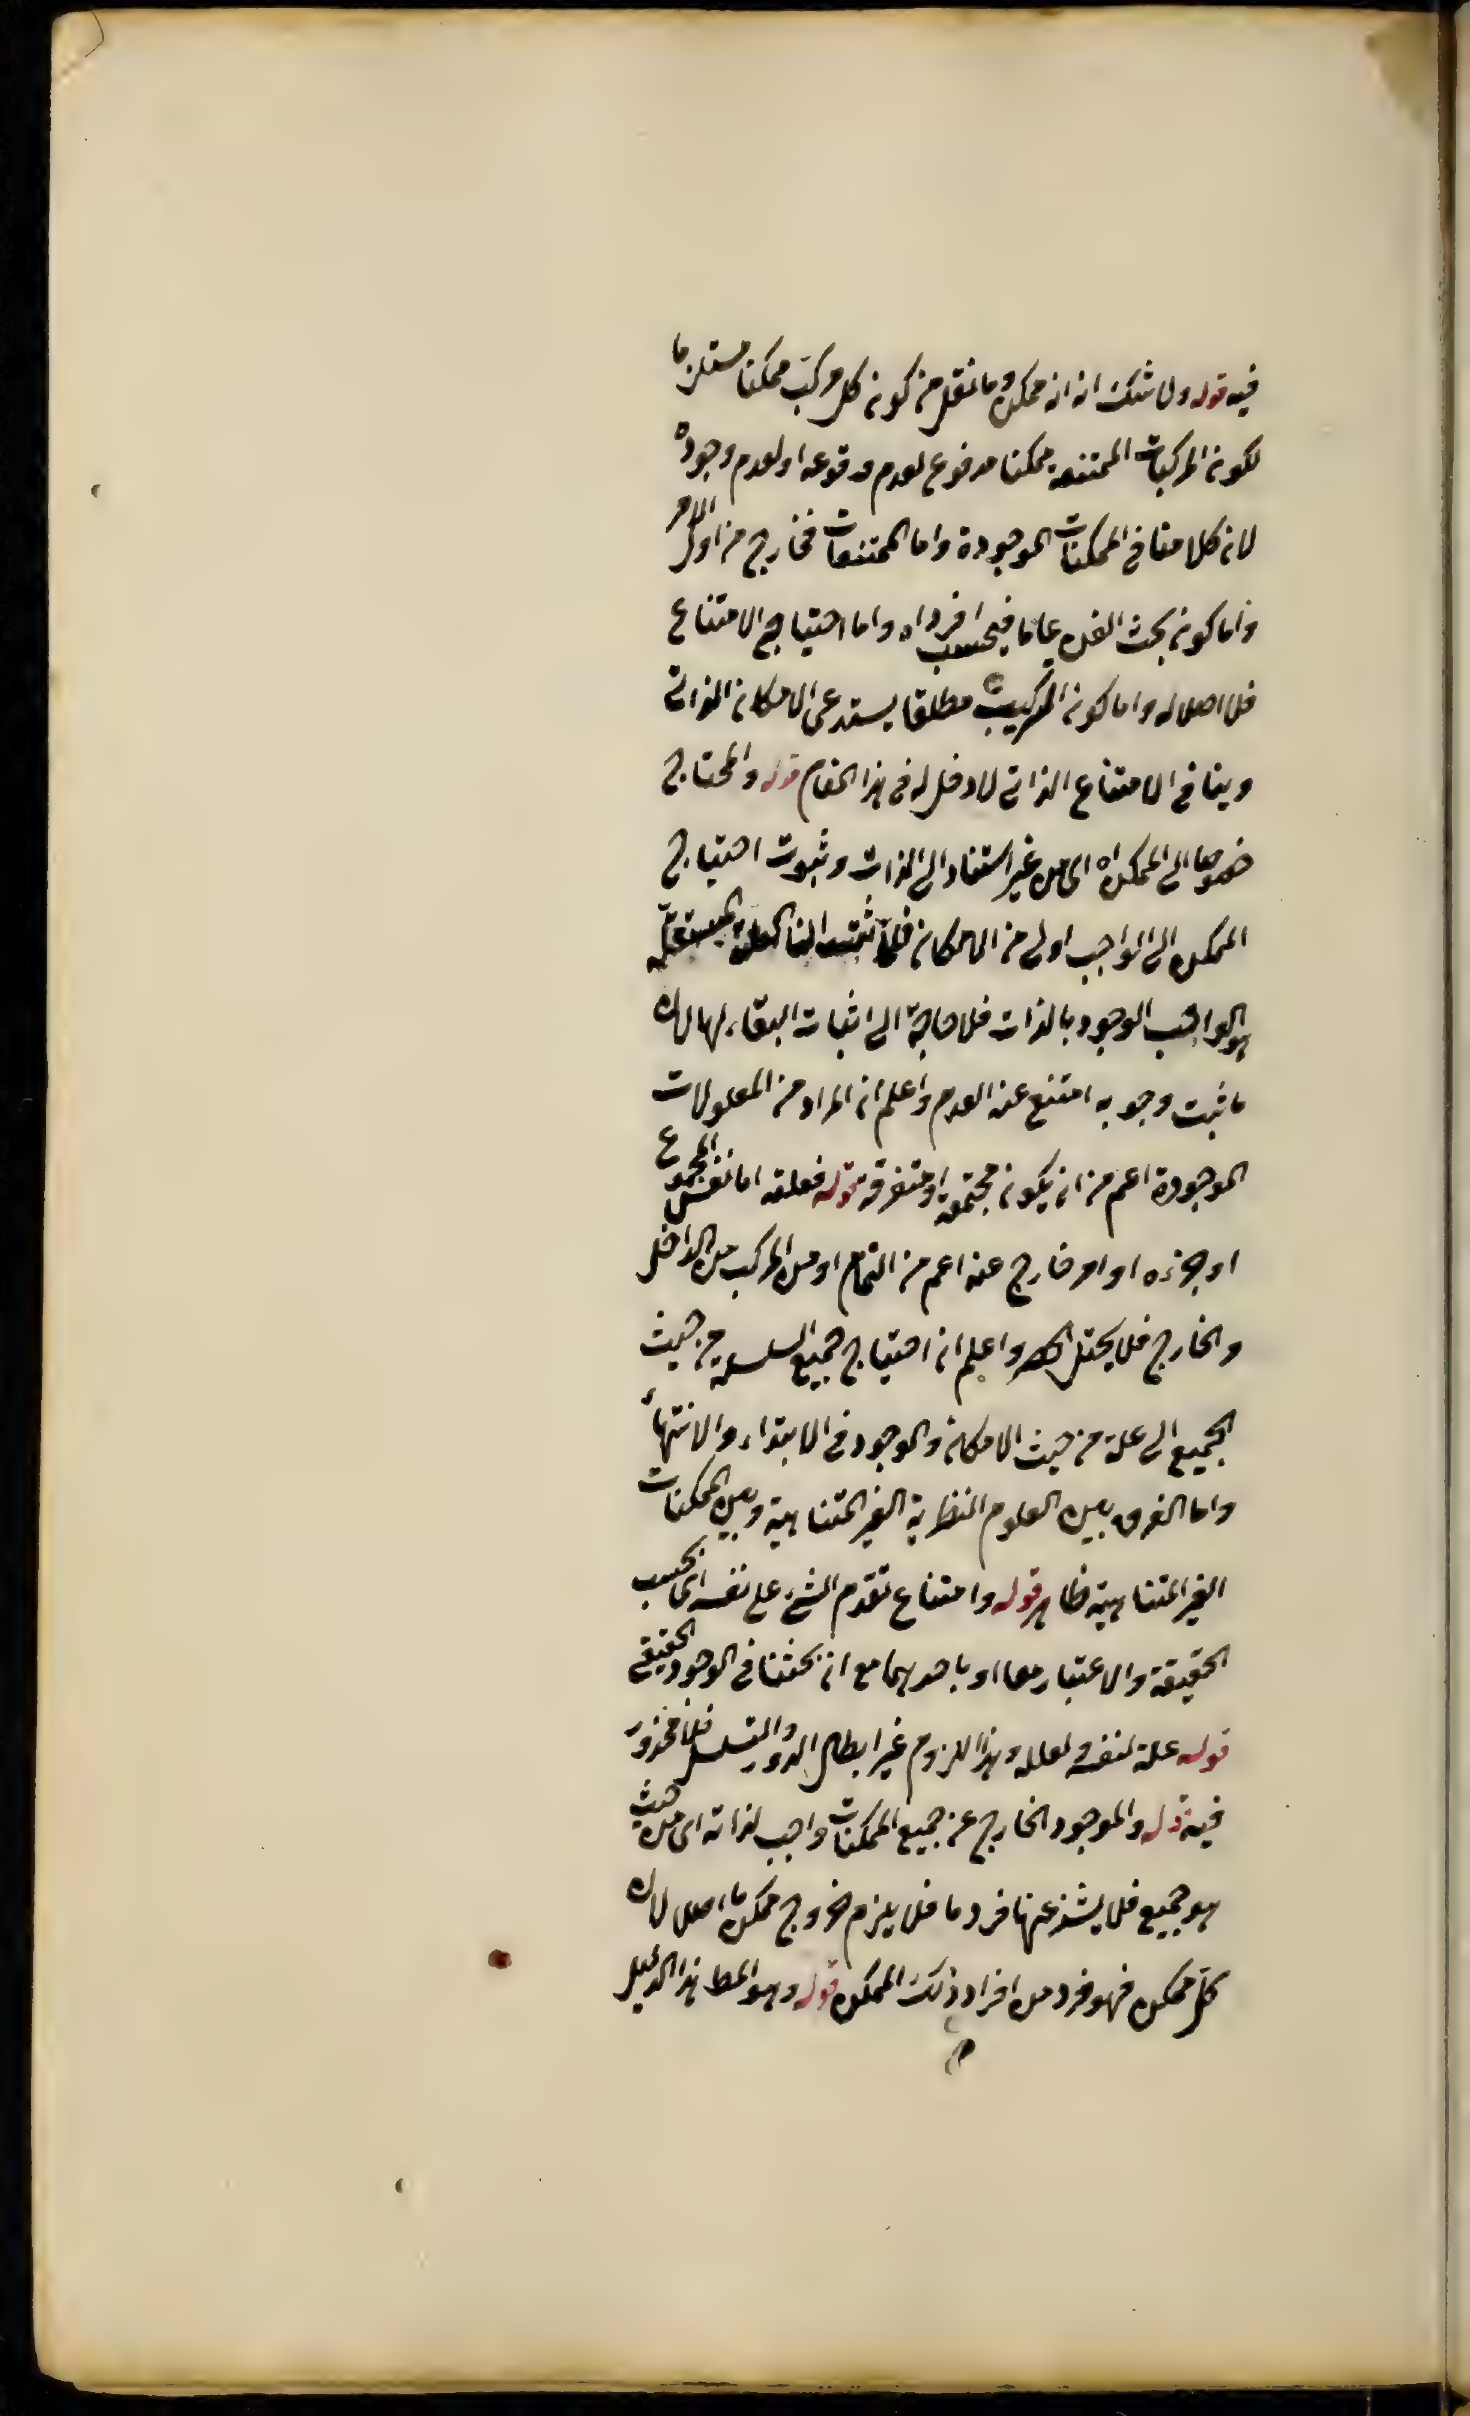 فيه قوله ولا شك انه ممكن وما نقل من كون كل مركب ممكنا مستلزما
لكون المركبات الممتنعة ممكنا مدفوع لعدم وقوعه او لعدم وجوده
لان كلامنا في الممكنات الموجودة واما الممتنعات فخارج من اول الامر
واما كون بحث الفن عاما فبحسب افراده واما احتياج الامتناع
فلا اصل له واما كون التركيب مطلقا يستدعي الامكان الذاتي
وينافي الامتناع الذاتي لا دخل له في هذا المقام قوله والمحتاج
خصوصا الى الممكن اه اى من غير استناد الى الذات وثبوت احتياج
الممكن الى الواجب اولى من الامكان فلما ثبت لنا العلة المستقلة
هو الواجب الوجود بالذات فلا حاجة الى اثبات البقاء لها لان
ما ثبت وجوبه امتنع عنه العدم واعلم ان المراد من المعلولات
الموجودة اعم من ان يكون مجتمعة او متفرقة قوله فعلته اما نفس المجموع
او جزءه او امر خارج عنه اعم من التمام او من المركب من الداخل
والخارج فلا يختل الحصر واعلم ان احتياج جميع السلسلة من حيث
الجميع الى علة من حيث الامكان والموجود في الابتداء والانتهاء
واما الفرق بين العلوم النظرية الغير المتناهية وبين الممكنات
الغير المتناهية ظاهر قوله وامتناع تقدم الشئ على نفسه اى بحسب
الحقيقة والاعتبار معا او باحدهما مع ان بحثنا في الوجود الحقيقي
قوله علة لنفسه ولعلله وهذا اللزوم غير ابطال الدور والتسلسل فلا محذور
فيه قوله والموجود الخارج عن جميع الممكنات واجب لذاته اى من حيث
هو جميع فلا يشذ عنها فرد ما فلا يلزم خروج ممكن ما اصلا لان
كل ممكن فهو فرد من افراد ذلك الممكن قوله وهو المط هذا الدليل